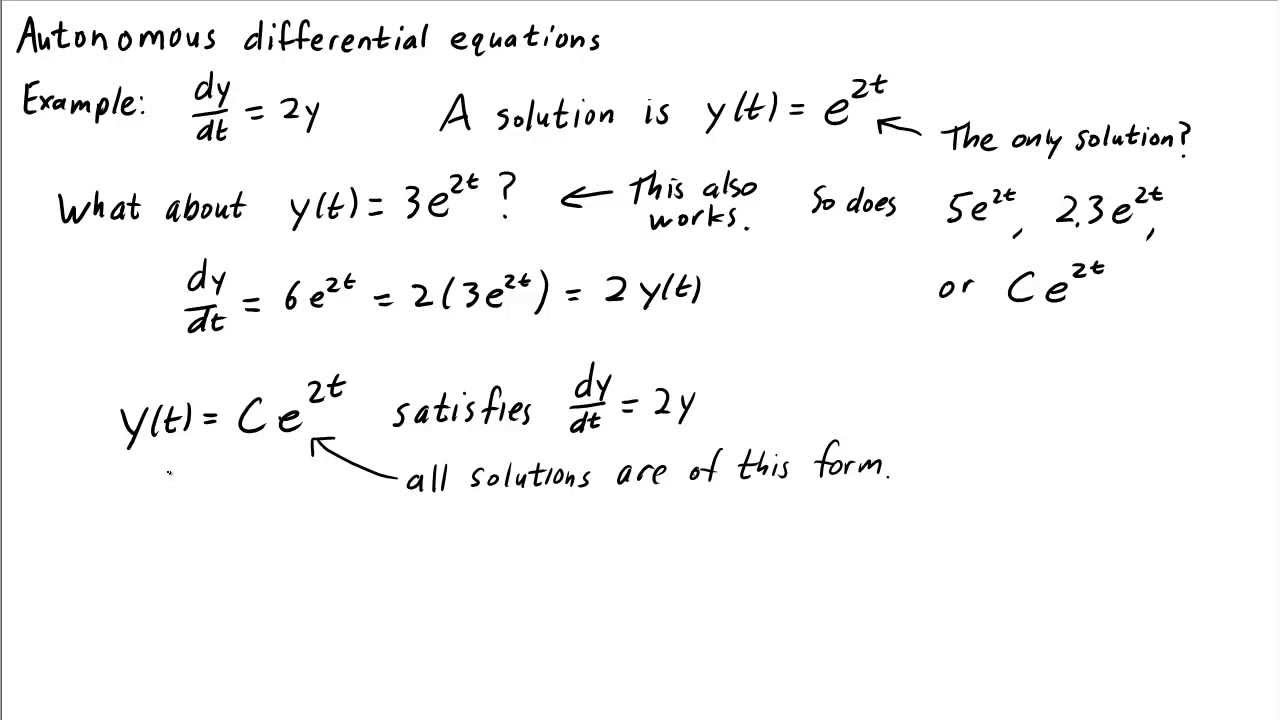 Autonomous differential equations
Example: dy/dt = 2y A solution is y(t) = e^{2t} ← The only solution?
What about y(t) = 3e^{2t} ? ← This also works. So does 5e^{2t}, 2.3e^{2t},
dy/dt = 6e^{2t} = 2(3e^{2t}) = 2y(t) or Ce^{2t}
y(t) = Ce^{2t} satisfies dy/dt = 2y
all solutions are of this form.